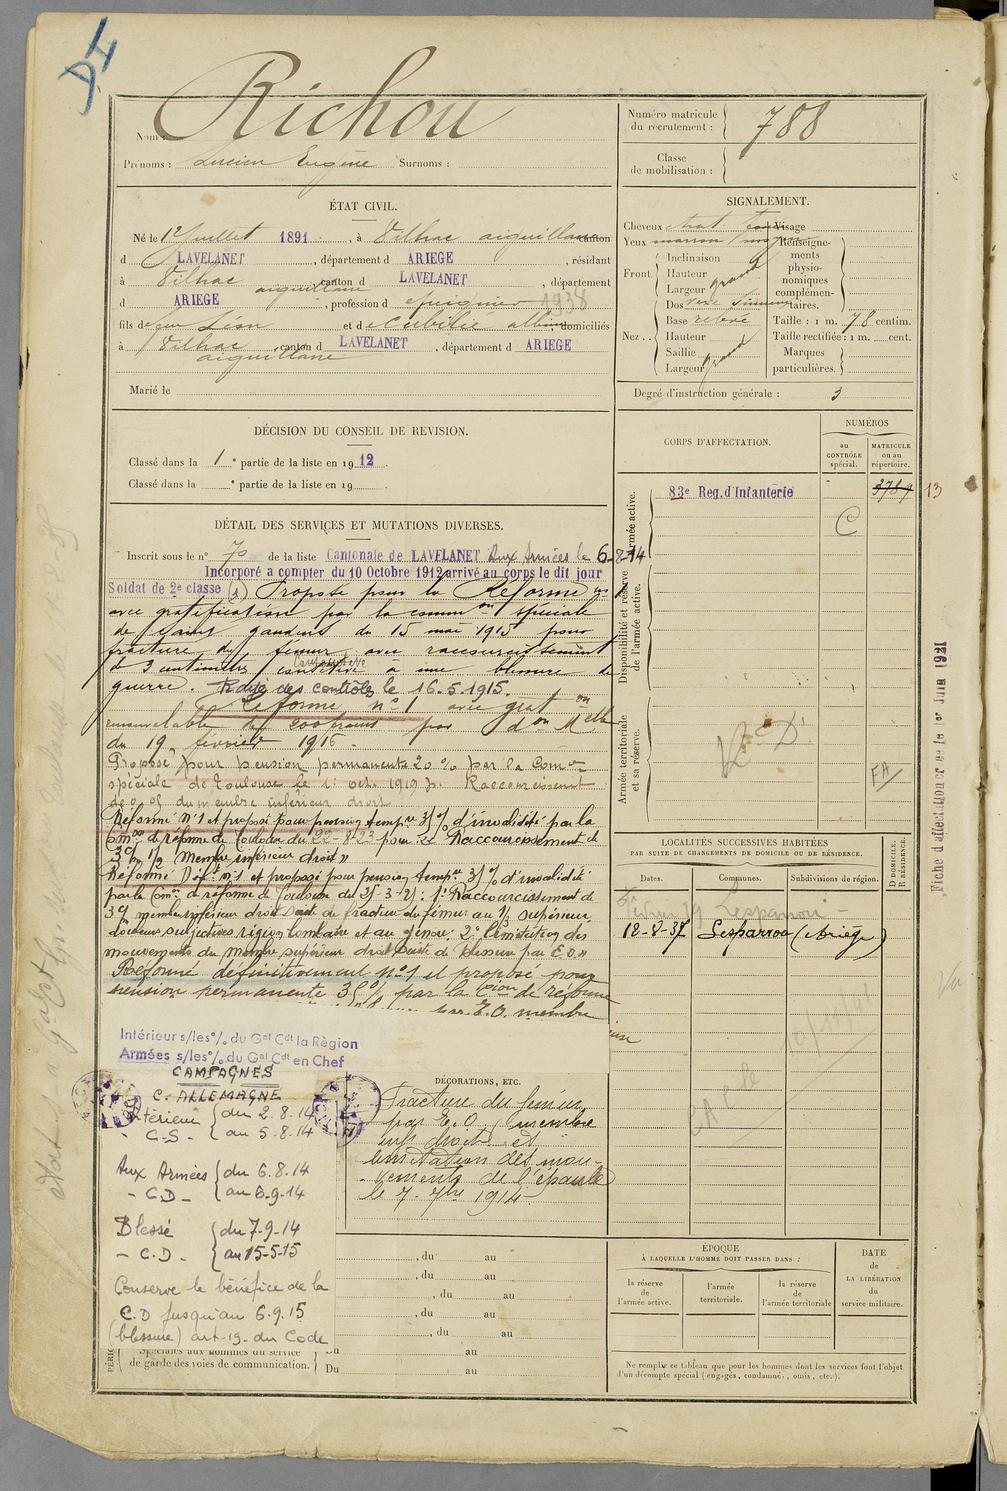 Richou
Nom :
Prénoms : Lucien Eugène Surnoms :
Numéro matricule du recrutement : 788
Classe de mobilisation :
ÉTAT CIVIL.
Né le 12 Juillet 1891, à Dilhac aiguillane canton
d LAVELANET, département d ARIEGE, résidant
à Dilhac aiguillane canton d LAVELANET, département
d ARIEGE, profession d 1938
fils de feu Léon et de domiciliés
à Dilhac aiguillane, canton d LAVELANET, département d ARIEGE
Marié le
SIGNALEMENT.
Cheveux chat Visage
Yeux marron Renseigne-
Inclinaison ments
Front. Hauteur physio-
Largeur grand nomiques
Dos complémen-
taires.
Base relevé Taille : 1 m. 78 centim.
Nez . . Hauteur Taille rectifiée : 1 m. cent.
Saillie Marques
Largeur grand particulières.
Degré d'instruction générale : 3
DÉCISION DU CONSEIL DE REVISION.
Classé dans la 1e partie de la liste en 1912
Classé dans la e partie de la liste en 19
CORPS D'AFFECTATION.
NUMÉROS
au CONTRÔLE spécial.
MATRICULE ou au répertoire.
Armée active.
83e Reg. d'Infanterie 3789 13
C
Disponibilité et réserve de l'armée active.
Armée territoriale et sa réserve.
DÉTAIL DES SERVICES ET MUTATIONS DIVERSES.
Inscrit sous le n° 70 de la liste Cantonale de LAVELANET Aux Armées le 6-8-14
Incorporé a compter du 10 Octobre 1912 arrivé au corps le dit jour
Soldat de 2e classe (1) Proposé pour la Réforme n° 1
avec gratification par la comm on spéciale
de du 15 mai 1915 pour
fracture du fémur avec raccourcissement
de 3 centimètres consécutive à une blessure de
guerre. Rayé des contrôles le 16.5.1915.
Réformé n° 1 avec grat on
renouvelable de 200 francs par d on Melle
du 19 février 1916.
Proposé pour pension permanente 20 % par la Comon
spéciale de Toulouse le 1er oct. 1919 p. Raccourcissement
de 0,05 du membre inférieur droit
Réformé N°1 et proposé pour pension tempre 35 % d'invalidité par la
Comon de réforme de Toulouse du 22-8-23 pour Raccourcissement de
3 c/m 1/2 Membre inférieur droit"
Réformé Déft n°1 et proposé pour pension tempre 35 % d'invalidité
par la Comon de réforme de Toulouse du : 1° Raccourcissement de
3 c/m membre inférieur droit Suite de fracture du fémur au 1/3 supérieur
douleurs subjectives région lombaire et au genou. 2° limitation des
mouvements du Membre supérieur droit Suite de blessure par E.O"
Réformé définitivement n°1 et proposé pour
pension permanente 35 % par la Cion de réforme
par E.O. membre
LOCALITÉS SUCCESSIVES HABITÉES
PAR SUITE DE CHANGEMENTS DE DOMICILE OU DE RÉSIDENCE.
Dates. Communes. Subdivisions de région. D DOMICILE. R RÉSIDENCE.
Lesparrou
18-8-37 Lesparrou (Ariège)
Intérieur s/les o/ du Gal Cdt la Région
Armées s/les o/ du Gal Cdt en Chef
CAMPAGNES
C. ALLEMAGNE
Intérieur du 2.8.14
- C-S - au 5.8.14
Aux Armées du 6.8.14
- C.D - au 6-9-14
Blessé du 7-9-14
- C.D. - au 15-5-15
Conserve le bénéfice de la
C.D jusqu'au 6.9.15
(blessure) art-19- du Code
DÉCORATIONS, ETC.
Fracture du fémur
par E.O. membre
inf. droit et
limitation des mou-
vements de l'épaule
le 7. 7bre 1914
, du au
, du au
, du au
, du au
, du au
Du au
Du au
Spéciales aux hommes du service
de garde des voies de communication.
ÉPOQUE
À LAQUELLE L'HOMME DOIT PASSER DANS :
la réserve de l'armée active.
l'armée territoriale.
la réserve de l'armée territoriale
DATE de LA LIBÉRATION du service militaire.
Ne remplir ce tableau que pour les hommes dont les services font l'objet
d'un décompte spécial (engagés, condamnés, omis, etc.).
Fiche d'affectation créée le 1er Juin 1921